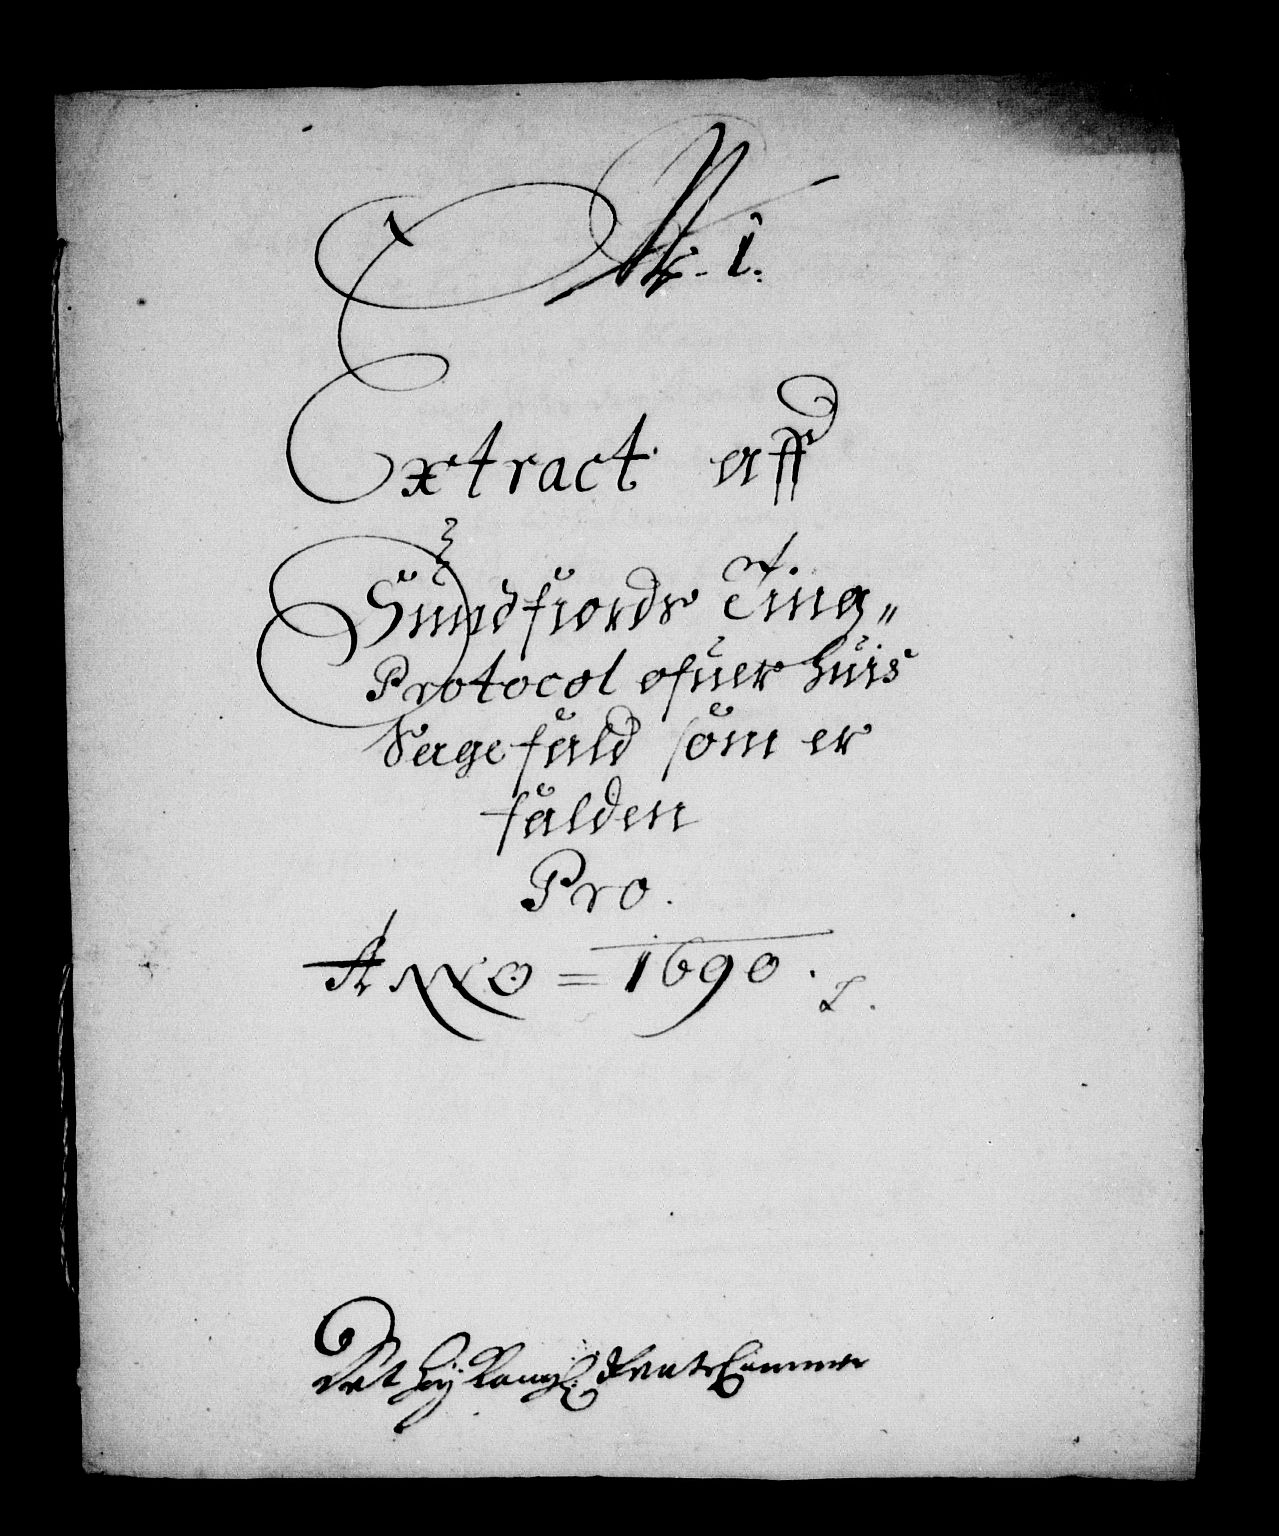 No. 1.
Extract aff
Sundfiords Ting„
Protocol ofuer huis
Sagefald som er
falden
Pro.
ANNO = 1690. L.
Det Høy Kongl: Rente Cammer